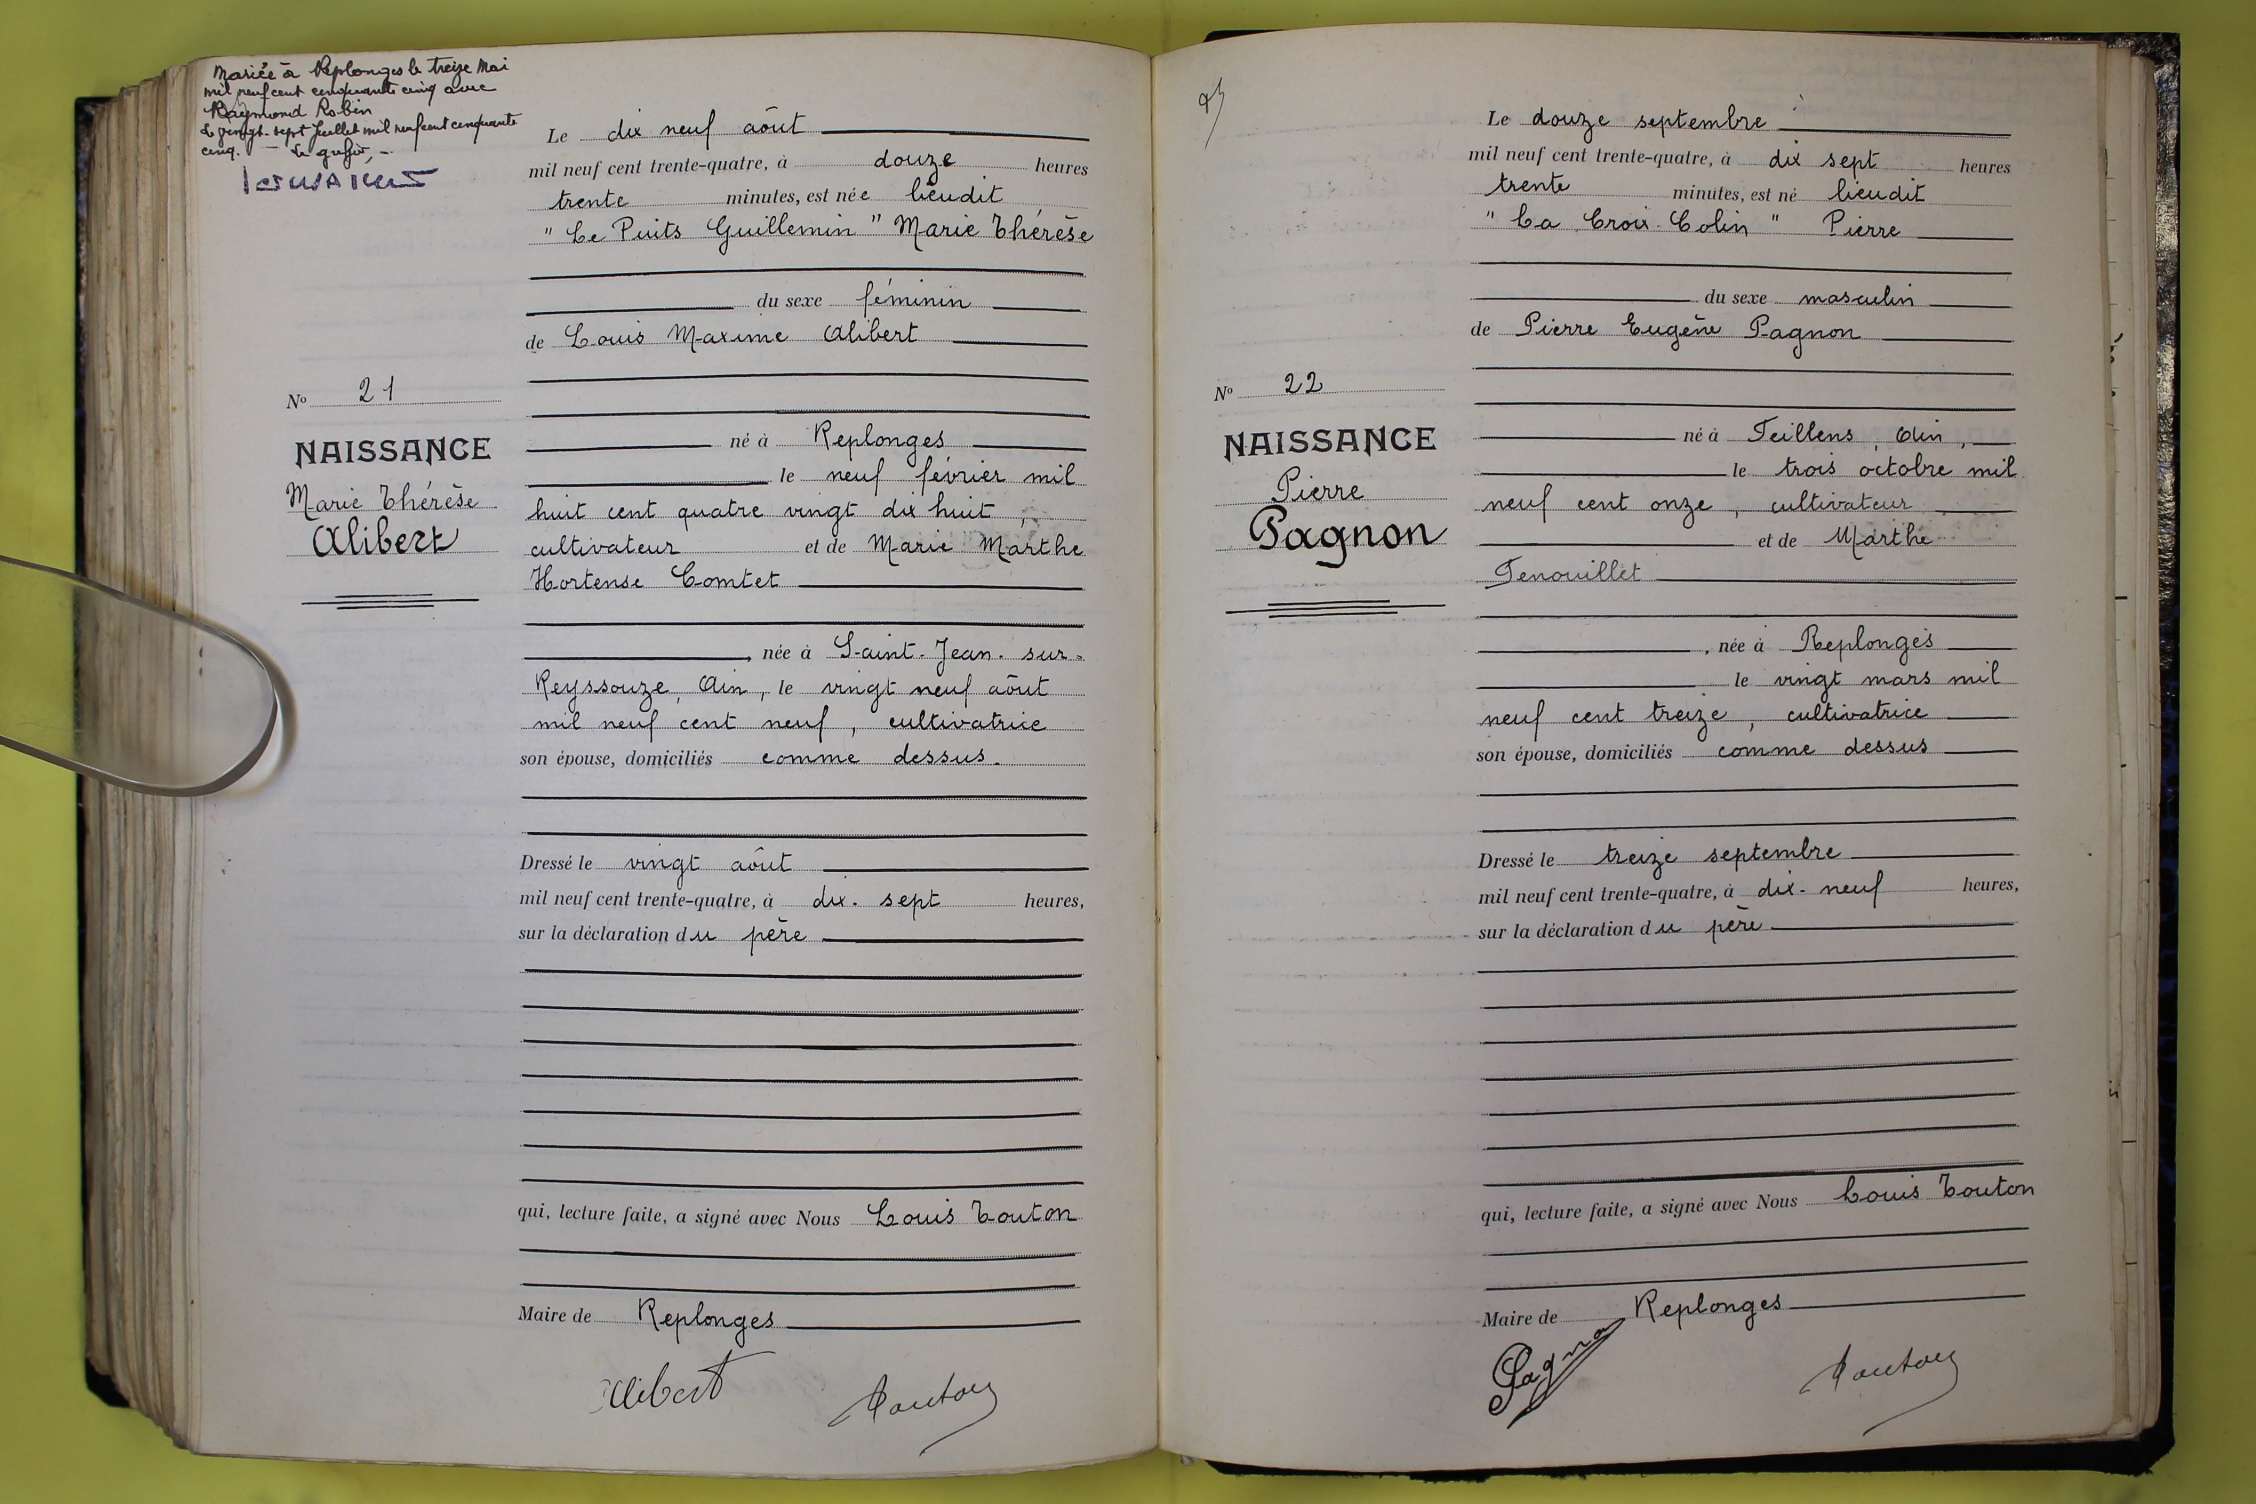 Mariée à Replonges le treize Mai
mil neuf cent cinquante cinq avec
Raymond Robin
Le vingt-sept Juillet mil neuf cent cinquante
cinq. — Le greffier, —
Le dix neuf août
mil neuf cent trente-quatre, à douze heures
trente minutes, est née lieudit
" Le Puits Guillemin " Marie Thérèse
du sexe féminin
de Louis Maxime Alibert
No 21
né à Replonges
NAISSANCE
le neuf février mil
Marie Thérèse
huit cent quatre vingt dix huit,
Alibert
cultivateur et de Marie Marthe
Hortense Comtet
, née à Saint-Jean-sur-
Reyssouze, Ain, le vingt neuf août
mil neuf cent neuf, cultivatrice
son épouse, domiciliés comme dessus.
Dressé le vingt août
mil neuf cent trente-quatre, à dix-sept heures,
sur la déclaration du père
qui, lecture faite, a signé avec Nous Louis Touton
Maire de Replonges
Alibert Touton
Le douze septembre
mil neuf cent trente-quatre, à dix sept heures
trente minutes, est né lieudit
" La Croix-Colin " Pierre
du sexe masculin
de Pierre Eugène Pagnon
No 22
né à Feillens, Ain,
NAISSANCE
le trois octobre mil
Pierre
neuf cent onze, cultivateur
Pagnon
et de Marthe
Fenouillet
, née à Replonges
le vingt mars mil
neuf cent treize, cultivatrice
son épouse, domiciliés comme dessus
Dressé le treize septembre
mil neuf cent trente-quatre, à dix-neuf heures,
sur la déclaration du père
qui, lecture faite, a signé avec Nous Louis Touton
Maire de Replonges
Pagnon Touton